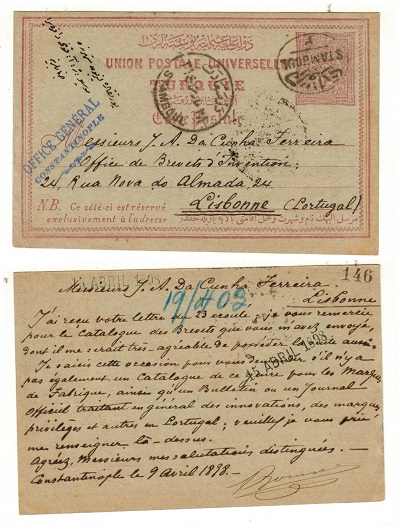 UNION POSTALE UNIVERSELLE
TURQUIE
Carte Postale
STAMBOUL
STAMBOUL
OFFICE GENERAL
CONSTANTINOPLE
Messieurs J. A. Da Cunha Ferreira
Office de Brevets d'Invention
24, Rua Nova do Almada, 24
Lisbonne (Portugal)
N.B. Ce côté-ci est réservé
exclusivement à l'adresse
ABRIL 1903
146
Messieurs J. A. Da Cunha Ferreira.
Lisbonne
19/4 03
J'ai reçu votre lettre du 23 écoulé, je vous remercie
pour le Catalogue des Brevets que vous m'avez envoyé,
dont il me serait très-agréable de posséder la suite aussi.
Je saisis cette occasion pour vous s'il n'y a
pas également un Catalogue de ce genre, pour les Marques
de Fabrique, ainsi qu'un Bulletin ou un Journal
Officiel traitant en général des innovations, des marques
privilèges et autres en Portugal; veuillez je vous prie
me renseigner là-dessus.
15 ABRIL 1903
Agréez, Messieurs mes salutations distinguées.
Constantinople le 9 Avril 1898.